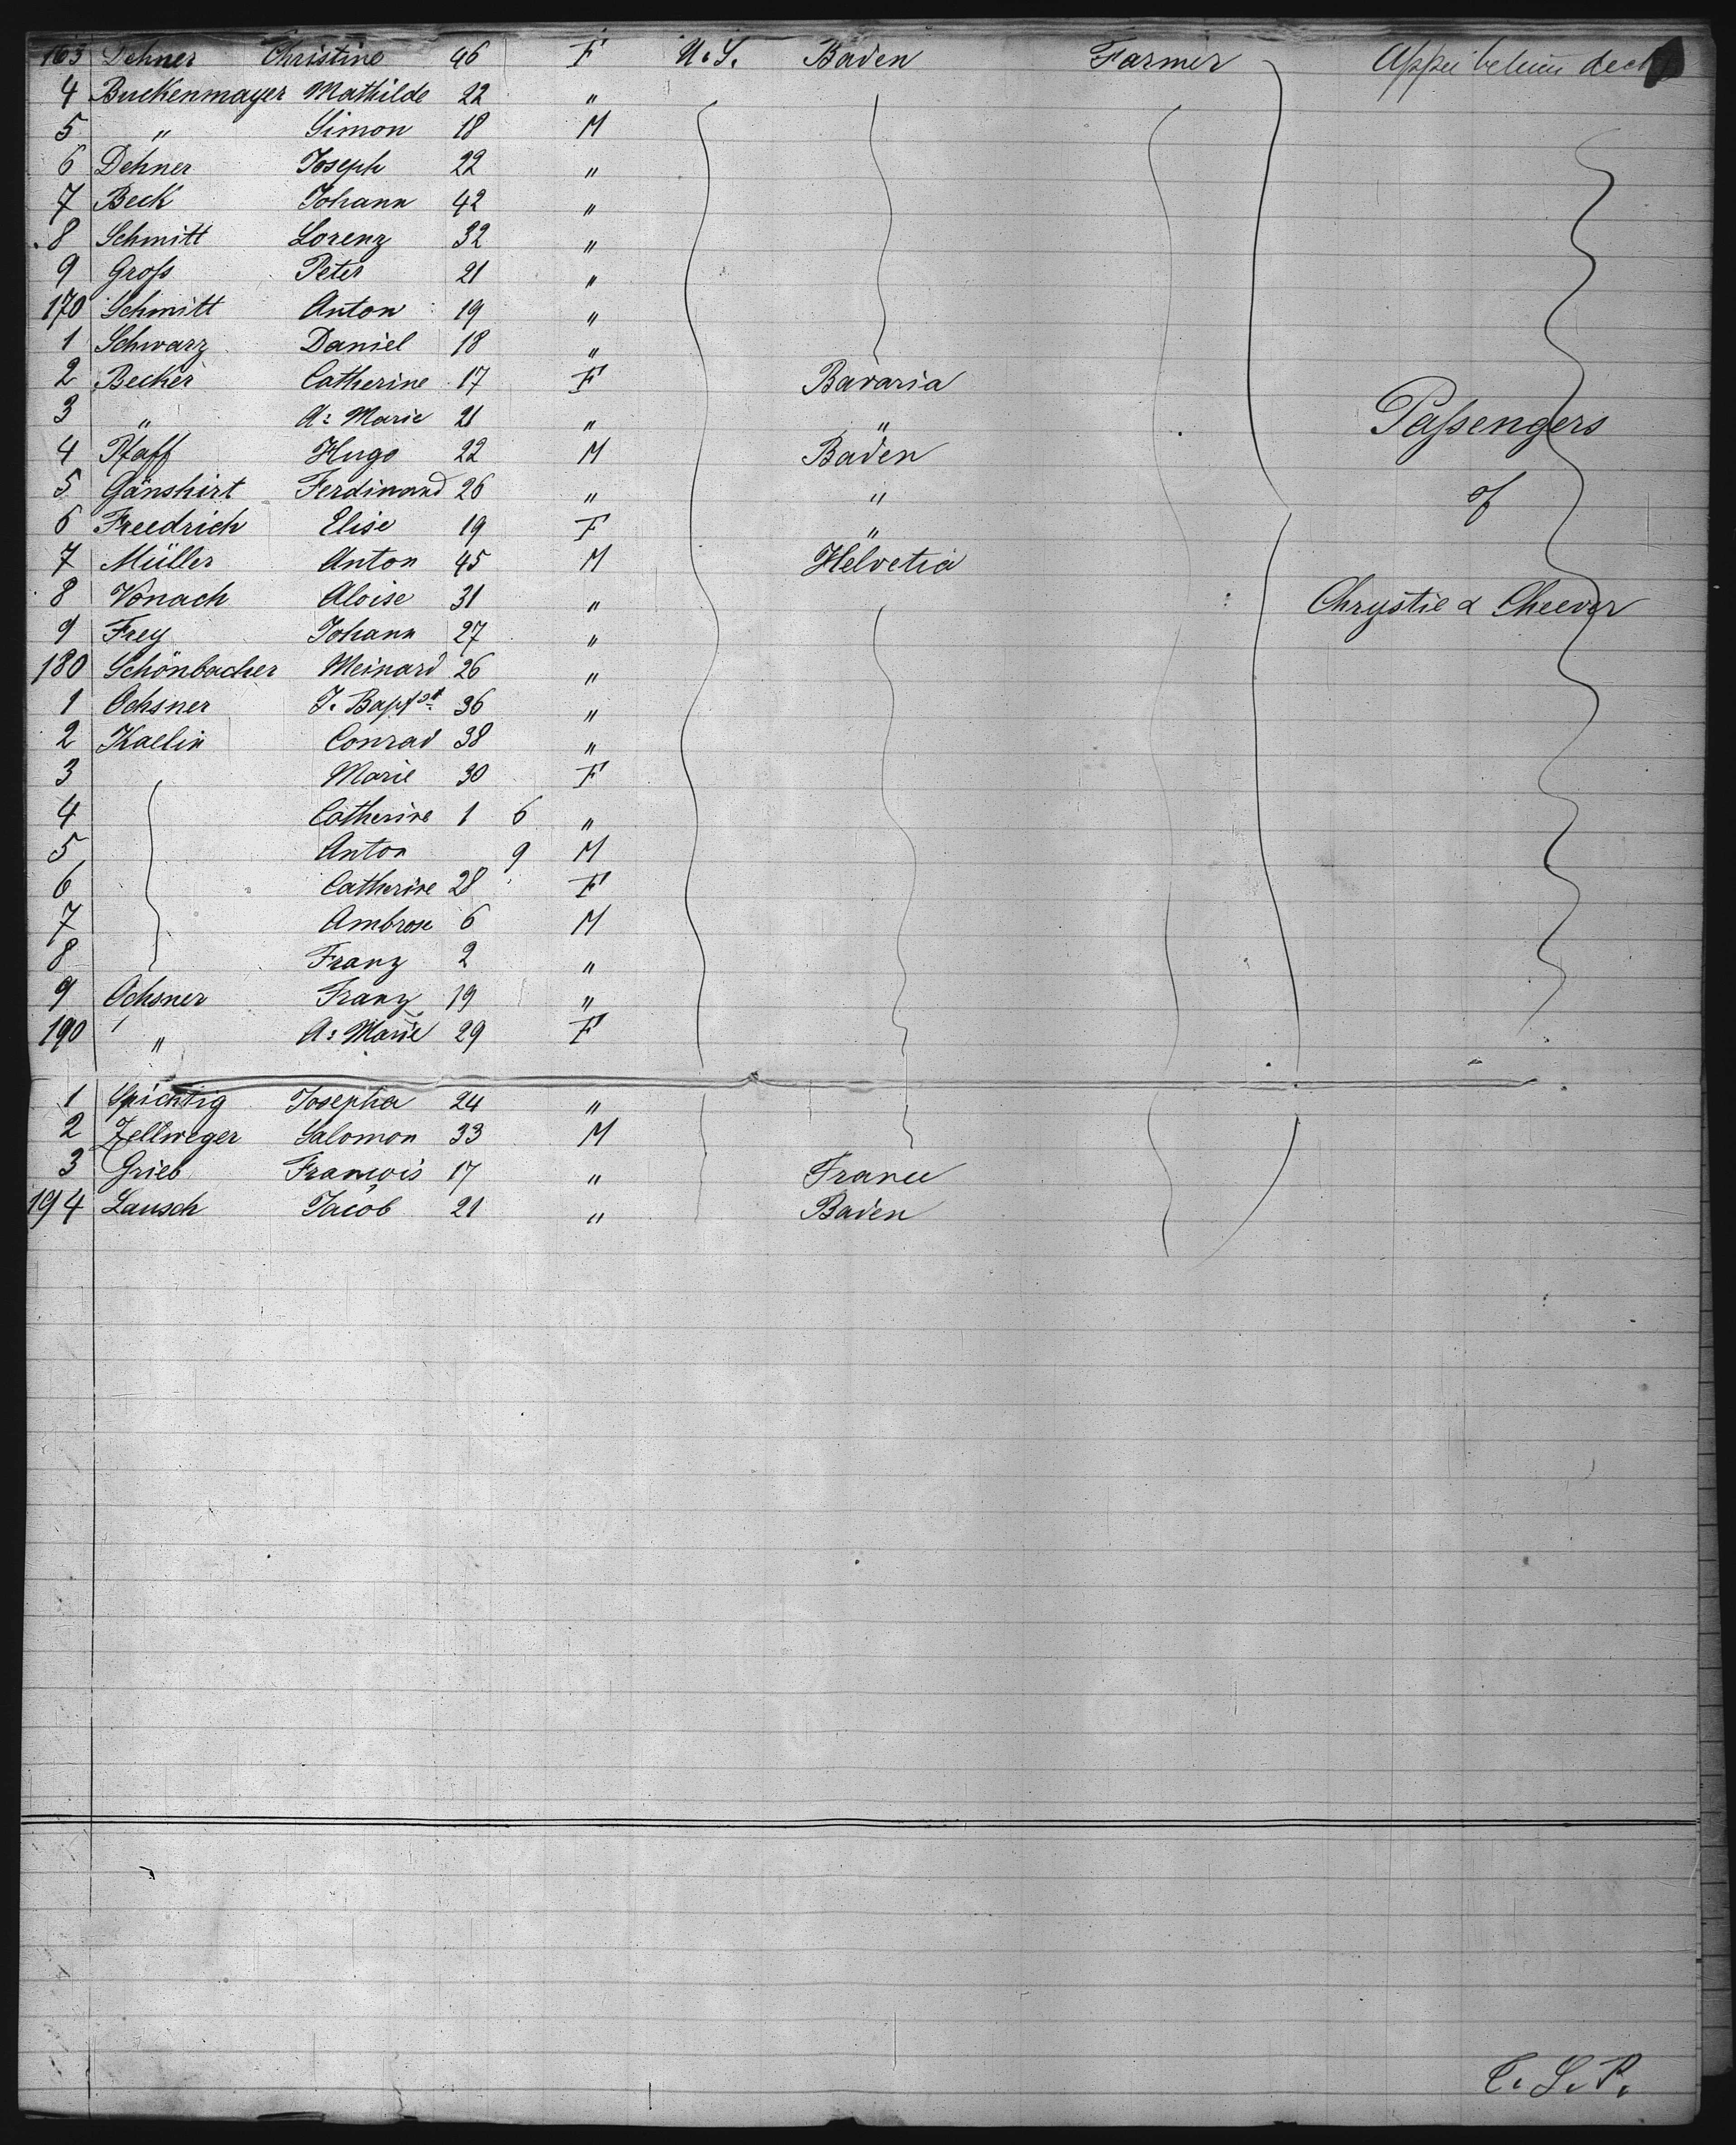 163 Dehner Christine 46 F U.S. Baden Farmer deck
4 Buckenmayer Mathilde 22 "
5 " Simon 18 M
6 Dehner Joseph 22 "
7 Beck Johann 42 "
8 Schmitt Lorenz 32 "
9 Groſs Peter 21 "
170 Schmitt Anton 19 "
1 Schwarz Daniel 18 "
2 Becker Catherine 17 F Bavaria
3 " A: Marie 21 " "
Paſsengers
4 Pfaff Hugo 22 M Baden
5 Gänshirt Ferdinand 26 " " of
6 Freedrich Elise 19 F "
7 Müller Anton 45 M Helvetia
8 Vonach Aloise 31 " Chrystie & Cheever
9 Frey Johann 27 "
180 Schönbacher Meinard 26 "
1 Ochsner J. Bapt st 36 "
2 Kaelin Conrad 38 "
3 Marie 30 F
4 Catherine 1 6 "
5 Anton 9 M
6 Catherine 28 F
7 Ambrose 6 M
8 Franz 2 "
9 Ochsner Franz 19 "
190 " A: Marie 29 F
1 Spichtig Josepha 24 "
2 Zellweger Salomon 33 M
3 Grieb François 17 " France
194 Lausch Jacob 21 " Baden